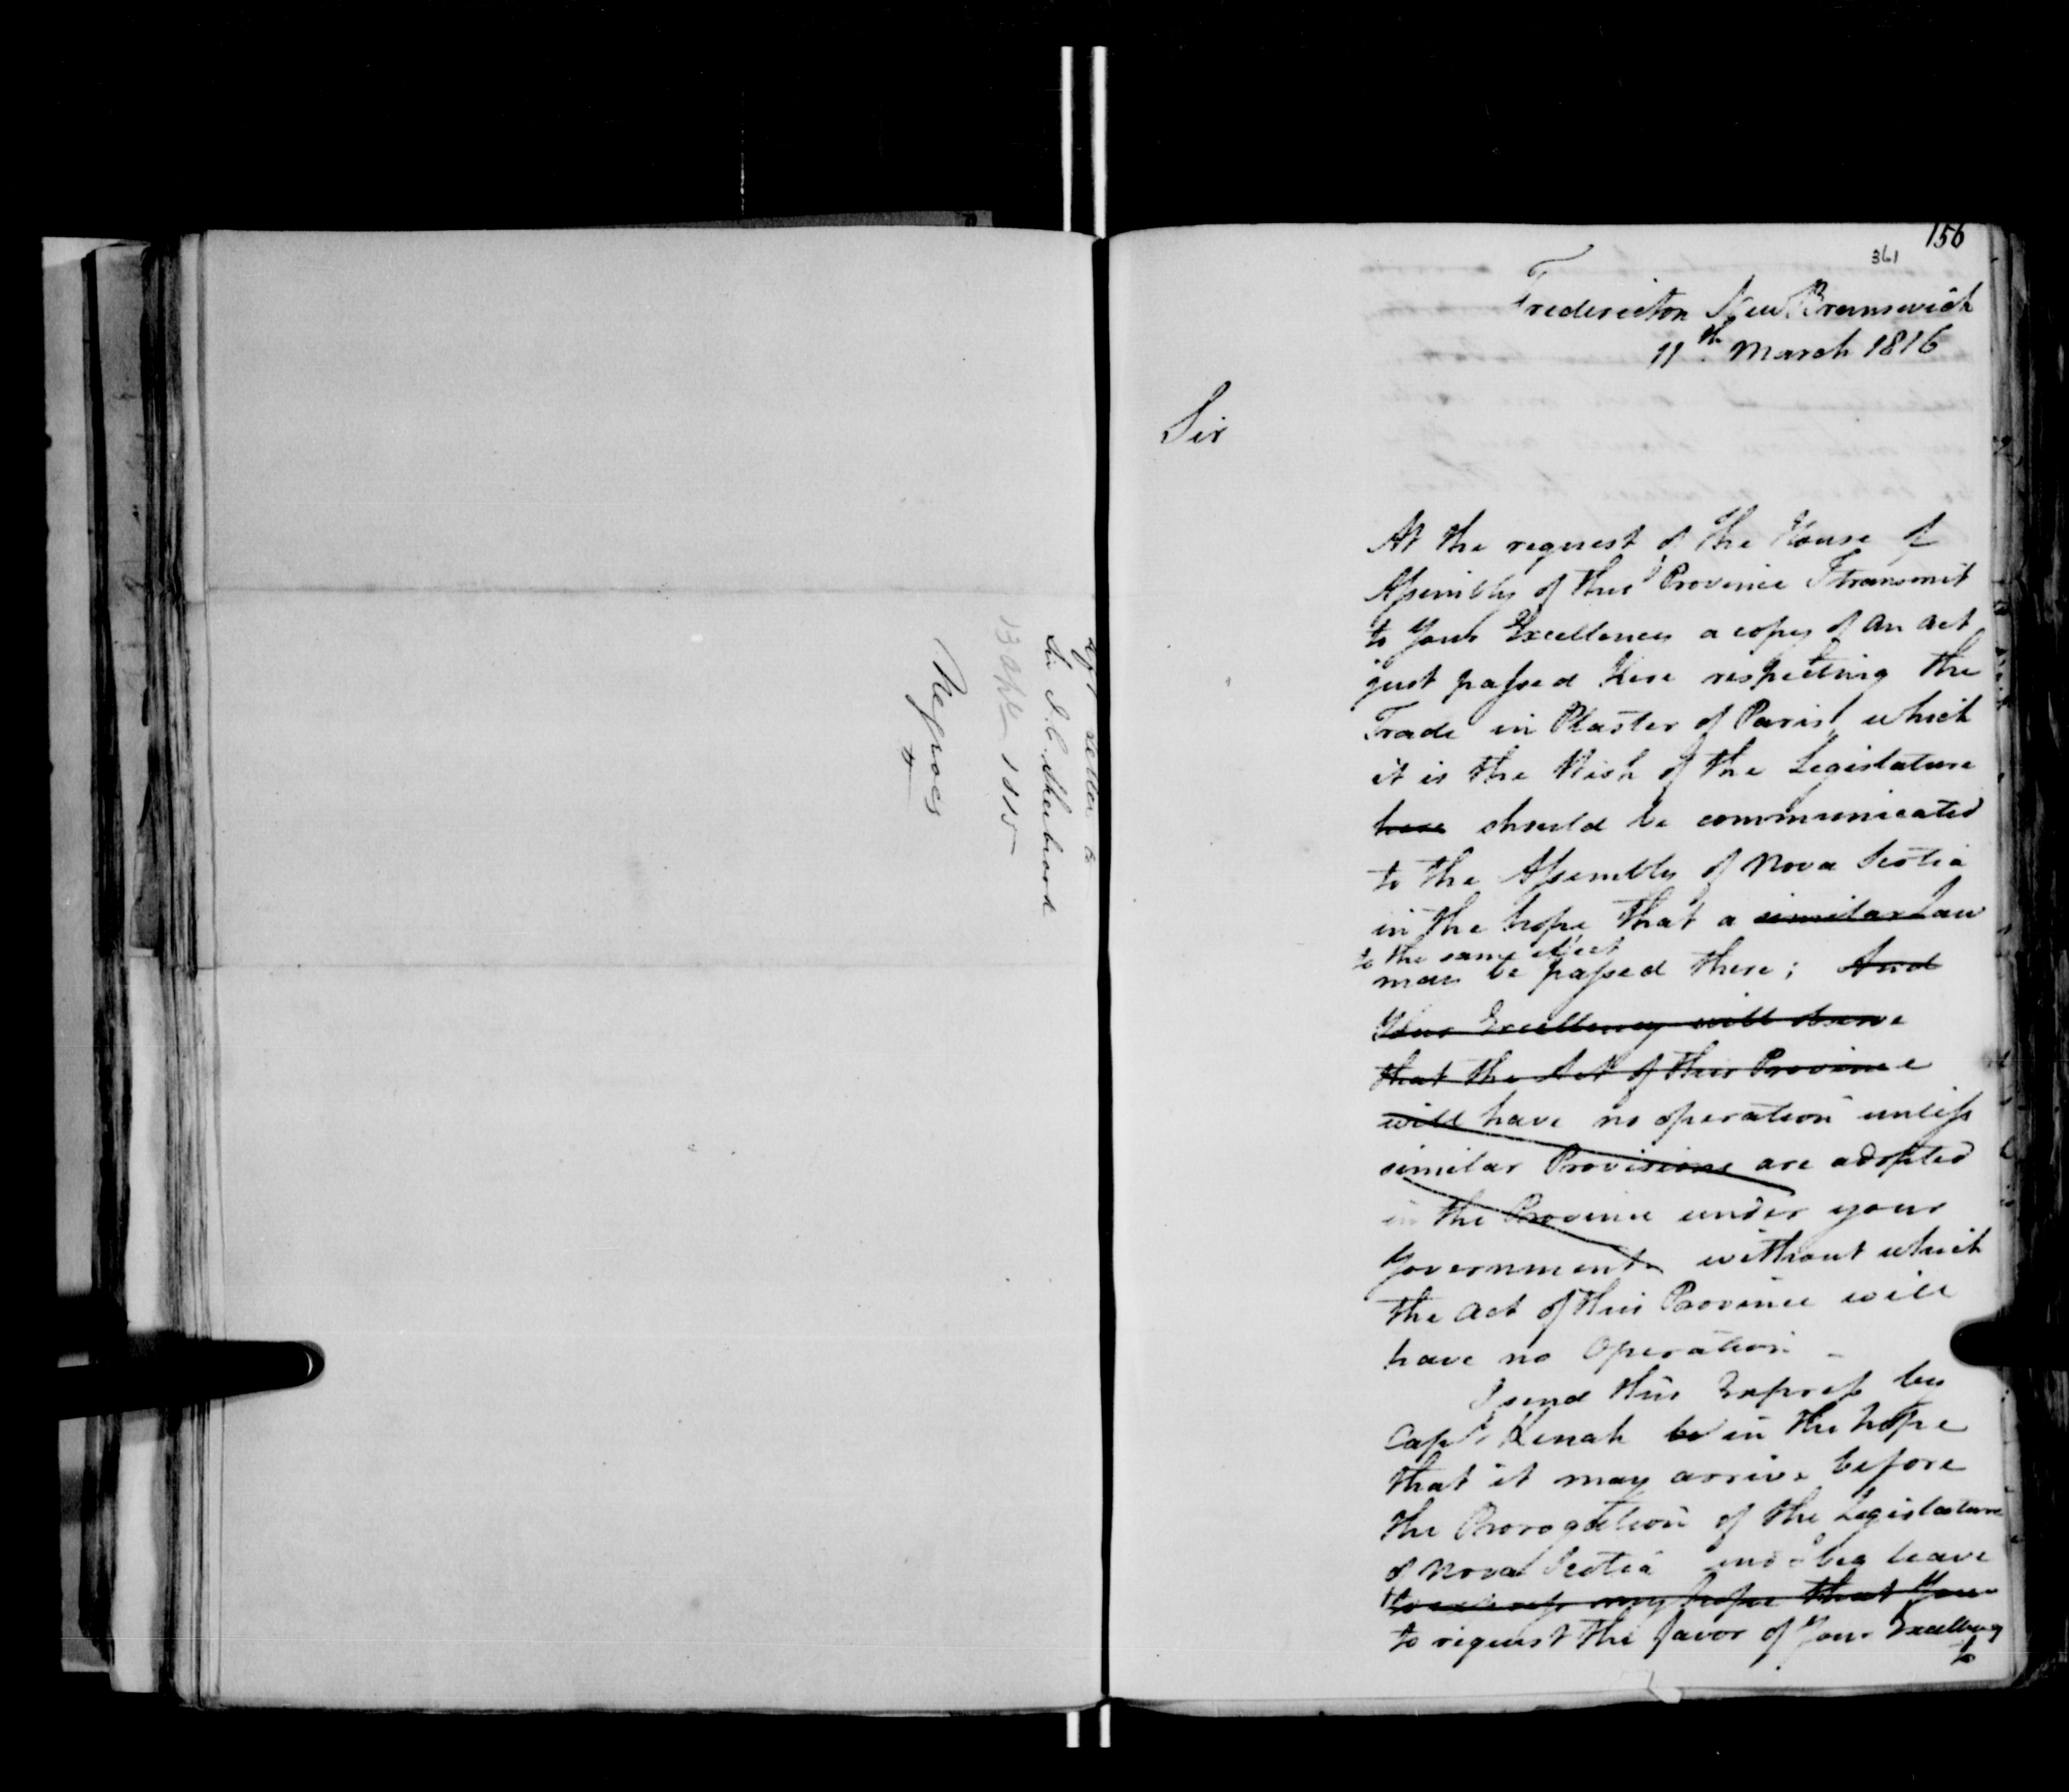 letter to
Sir J. C. Sherbrooke
13 April 1815
Negroes
156
361
Fredericton New Brunswick
11th March 1816
Sir
At the request of the House of
Assembly of this Province I transmit
to Your Excellency a copy of an act
just passed here respecting the
Trade in Plaster of Paris, which
it is the Wish of the Legislature
here should be communicated
to the Assembly of Nova Scotia
in the hope that a similar Law
to the same effect
may be passed there; And
Your Excellency will observe
that the Act of this Province
will have no operation unless
similar Provisions are adopted
in the Province under your
Government without which
the act of this Province will
have no Operation -
I send this Express by
Capt. Kenah be in the hope
that it may arrive before
the Prorogation of the Legislature
of Nova Scotia and beg leave
to express my hope that You
to request the favor of Your Excellency
to